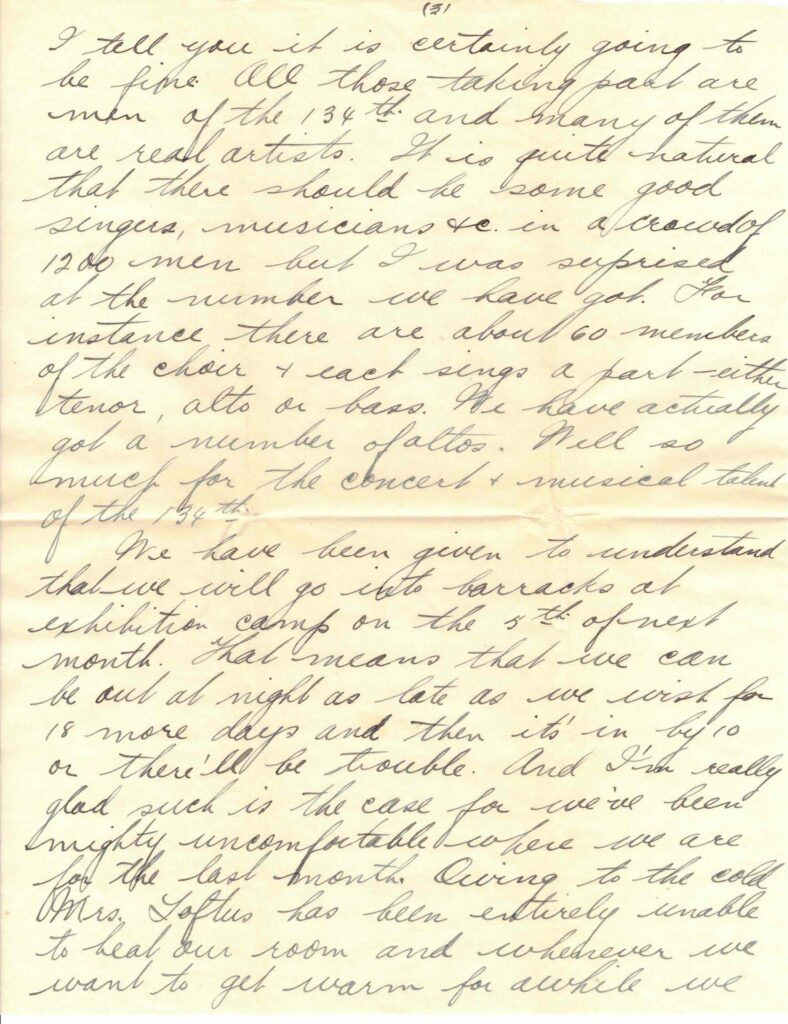 (3)
I tell you it is certainly going to
be fine. All those taking part are
men of the 134th. and many of them
are real artists. It is quite natural
that there should be some good
singers, musicians &c. in a crowd of
1200 men but I was suprised
at the number we have got. For
instance there are about 60 members
of the choir & each sings a part - either
tenor, alto or bass. We have actually
got a number of altos. Well so
much for the concert & musical talent
of the 134th.
We have been given to understand
that we will go into barracks at
exhibition camp on the 5th. of next
month. That means that we can
be out at night as late as we wish for
18 more days and then it's in by 10
or there'll be trouble. And I'm really
glad such is the case for we've been
mighty uncomfortable where we are
for the last month. Owing to the cold
Mrs. Loftus has been entirely unable
to heat our room and whenever we
want to get warm for awhile we